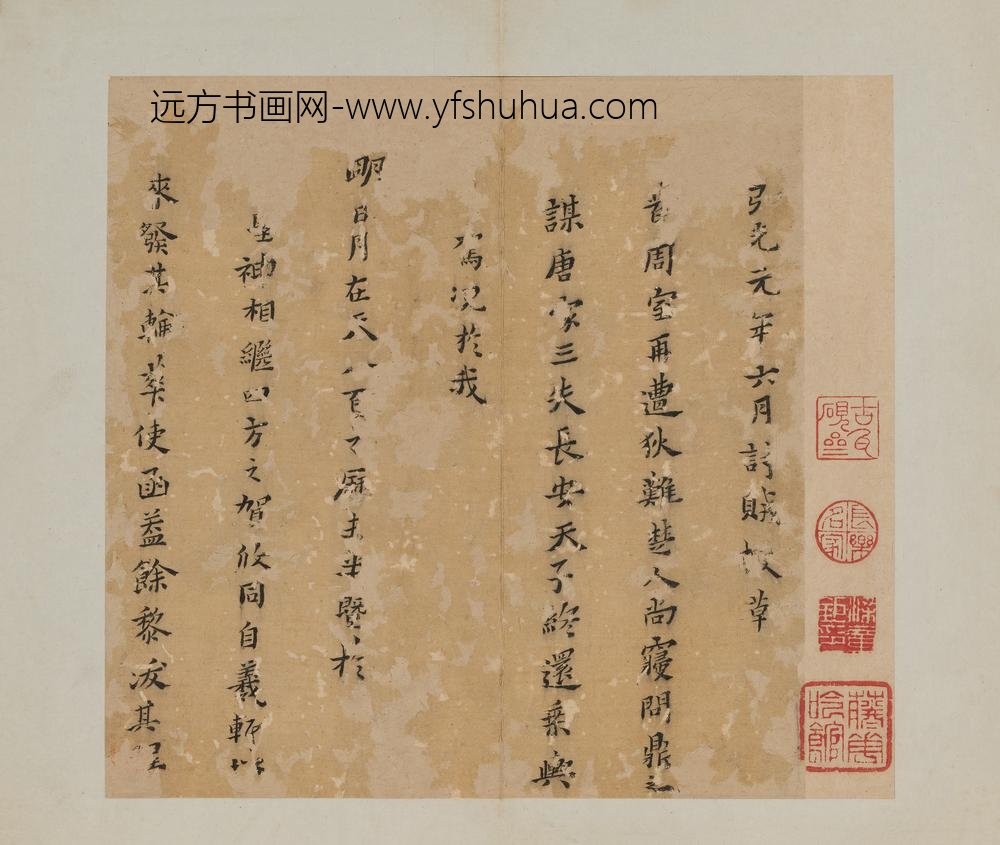 远方书画网-www.yfshuhua.com
弘光元年六月討賊檄草
昔周室再遭狄難楚人尚寢問鼎之
謀唐室三失長安天子終還乘輿
焉況於我
明日月在天八百之曆未半暨於
聖神相繼四方之賀攸同自羲軒以
來發其輪葉使函蓋餘黎戾其
長樂名家